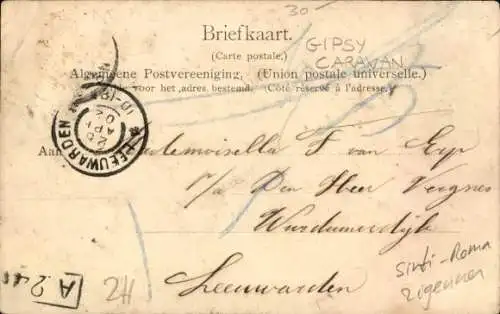 30-
Briefkaart.
(Carte postale)
GIPSY
CARAVAN
Algemeene Postvereeniging. (Union postale universelle.)
voor het adres bestemd. (Côté réservé à l'adresse.)
LEEUWARDEN
25
APR
02
Aan Mademoiselle F van Eyp
p/a Den Heer Vergnes
Wirdumerdijk
Leeuwarden
Sinti-Roma
Zigeuner
A.2
2H